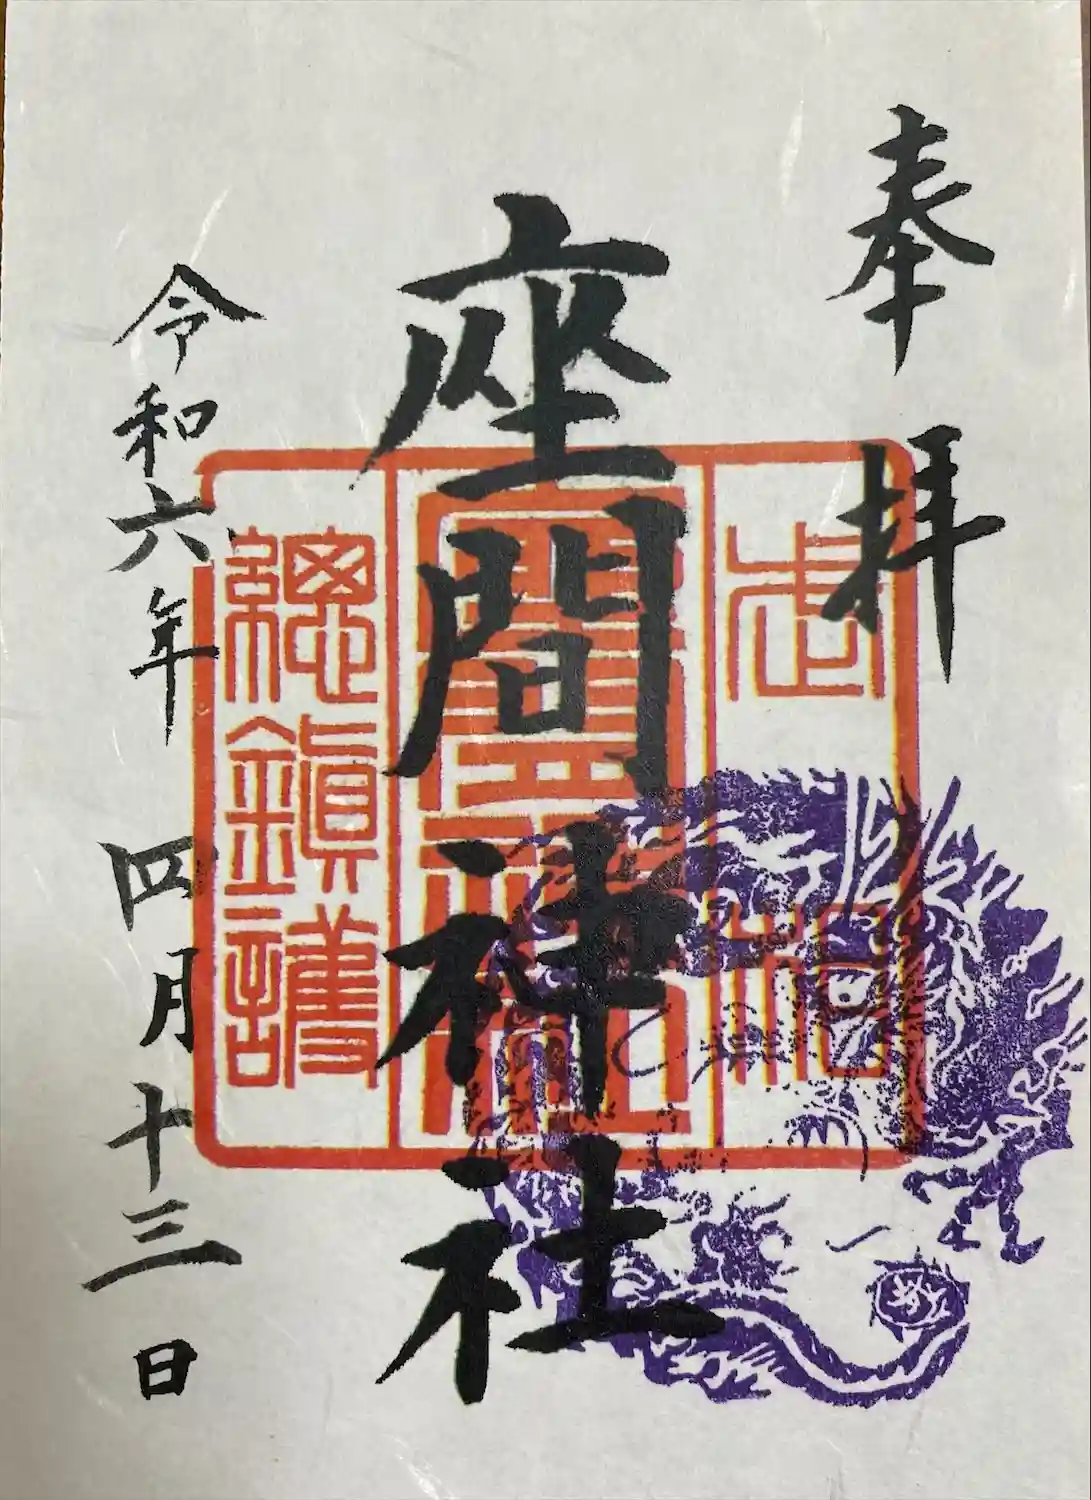 奉拝
座間神社
令和六年四月十三日
相武
總鎮護